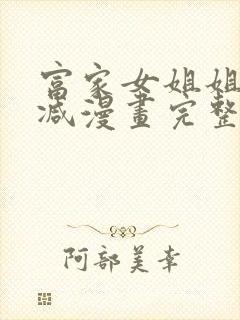 富家女姐姐
减漫畫完整
阿部美幸